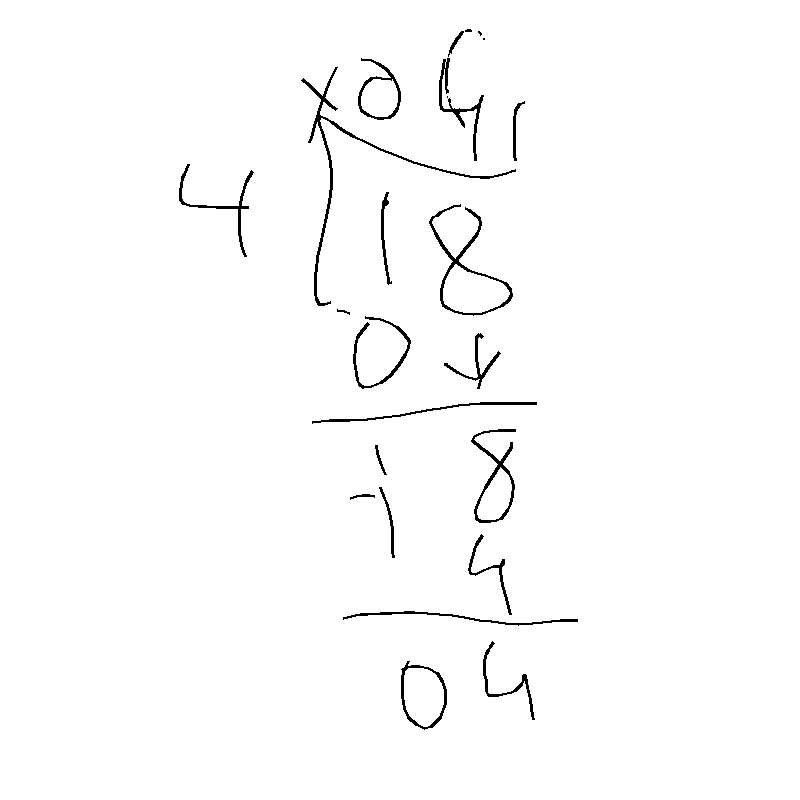 x04,
4 18
0↓
18
-14
04